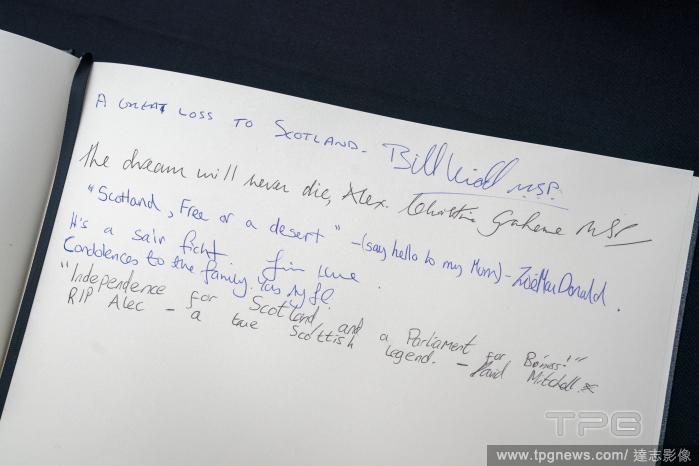 A GREAT LOSS TO SCOTLAND. Bill Kidd MSP.
The dream will never die, Alex. Christine Grahame MSP
"Scotland, Free or a desert" - (say hello to my Mum) - Zoë MacDonald.
It's a sair ficht
Condolences to the family.
"Independence for Scotland and a Parliament for Bo'ness!"
RIP Alec - a true Scottish legend. - David Mitchell x
TPG
www.tpgnews.com/ 達志影像